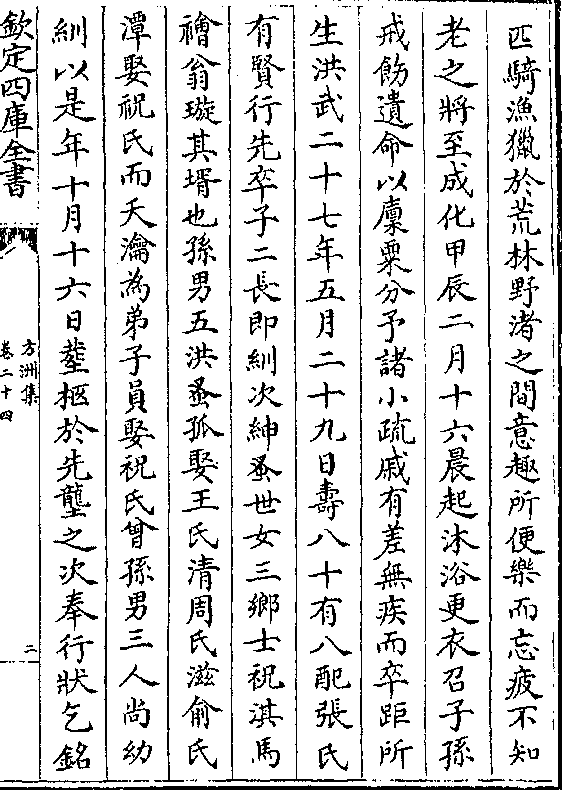 匹騎漁獵於荒林野渚之間意趣所便樂而忘疲不知
老之將至成化甲辰二月十六晨起沐浴更衣召子孫
戒飭遺命以廩粟分予諸小疏戚有差無疾而卒距所
生洪武二十七年五月二十九日壽八十有八配張氏
有賢行先卒子二長即紃次紳蚤世女三鄉士祝淇馬
禬翁璇其壻也孫男五洪蚤孤娶王氏清周氏滋俞氏
潭娶祝氏而夭瀹為弟子員娶祝氏曾孫男三人尚幼
紃以是年十月十六日塟柩於先壟之次奉行狀乞銘
欽定四庫全書
方洲集
卷二十四
二